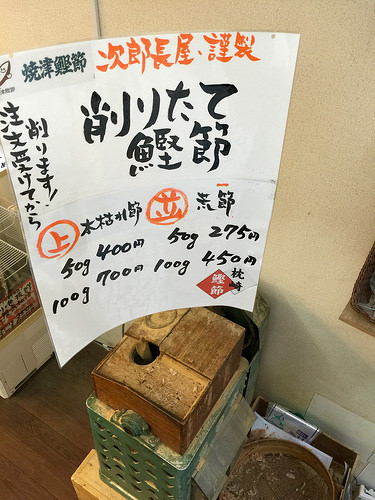 焼津鰹節
次郎長屋、謹製
削りたて
鰹節
注文受けてから
削ります!
上
本枯れ節
50g 400円
100g 700円
並
荒節
50g 275円
100g 450円
鰹節
枕崎